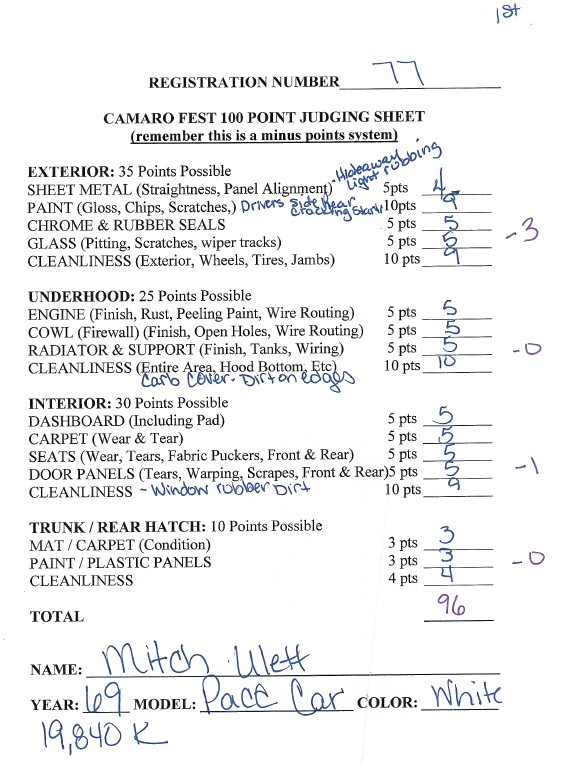 1st
REGISTRATION NUMBER 77
CAMARO FEST 100 POINT JUDGING SHEET
(remember this is a minus points system)
EXTERIOR: 35 Points Possible
SHEET METAL (Straightness, Panel Alignment) - Hideaway light rubbing 5pts 4
PAINT (Gloss, Chips, Scratches,) Drivers side Rear cracking Start 10pts 9
CHROME & RUBBER SEALS 5 pts 5
GLASS (Pitting, Scratches, wiper tracks) 5 pts 5 -3
CLEANLINESS (Exterior, Wheels, Tires, Jambs) 10 pts 9
UNDERHOOD: 25 Points Possible
ENGINE (Finish, Rust, Peeling Paint, Wire Routing) 5 pts 5
COWL (Firewall) (Finish, Open Holes, Wire Routing) 5 pts 5
RADIATOR & SUPPORT (Finish, Tanks, Wiring) 5 pts 5 -0
CLEANLINESS (Entire Area, Hood Bottom, Etc) 10 pts 10
Carb Cover - Dirt on edges
INTERIOR: 30 Points Possible
DASHBOARD (Including Pad) 5 pts 5
CARPET (Wear & Tear) 5 pts 5
SEATS (Wear, Tears, Fabric Puckers, Front & Rear) 5 pts 5
DOOR PANELS (Tears, Warping, Scrapes, Front & Rear)5 pts 5 -1
CLEANLINESS - Window rubber Dirt 10 pts 9
TRUNK / REAR HATCH: 10 Points Possible
MAT / CARPET (Condition) 3 pts 3
PAINT / PLASTIC PANELS 3 pts 3 -0
CLEANLINESS 4 pts 4
TOTAL 96
NAME: Mitch Ulett
YEAR: 69 MODEL: Pace Car COLOR: White
19,840 K